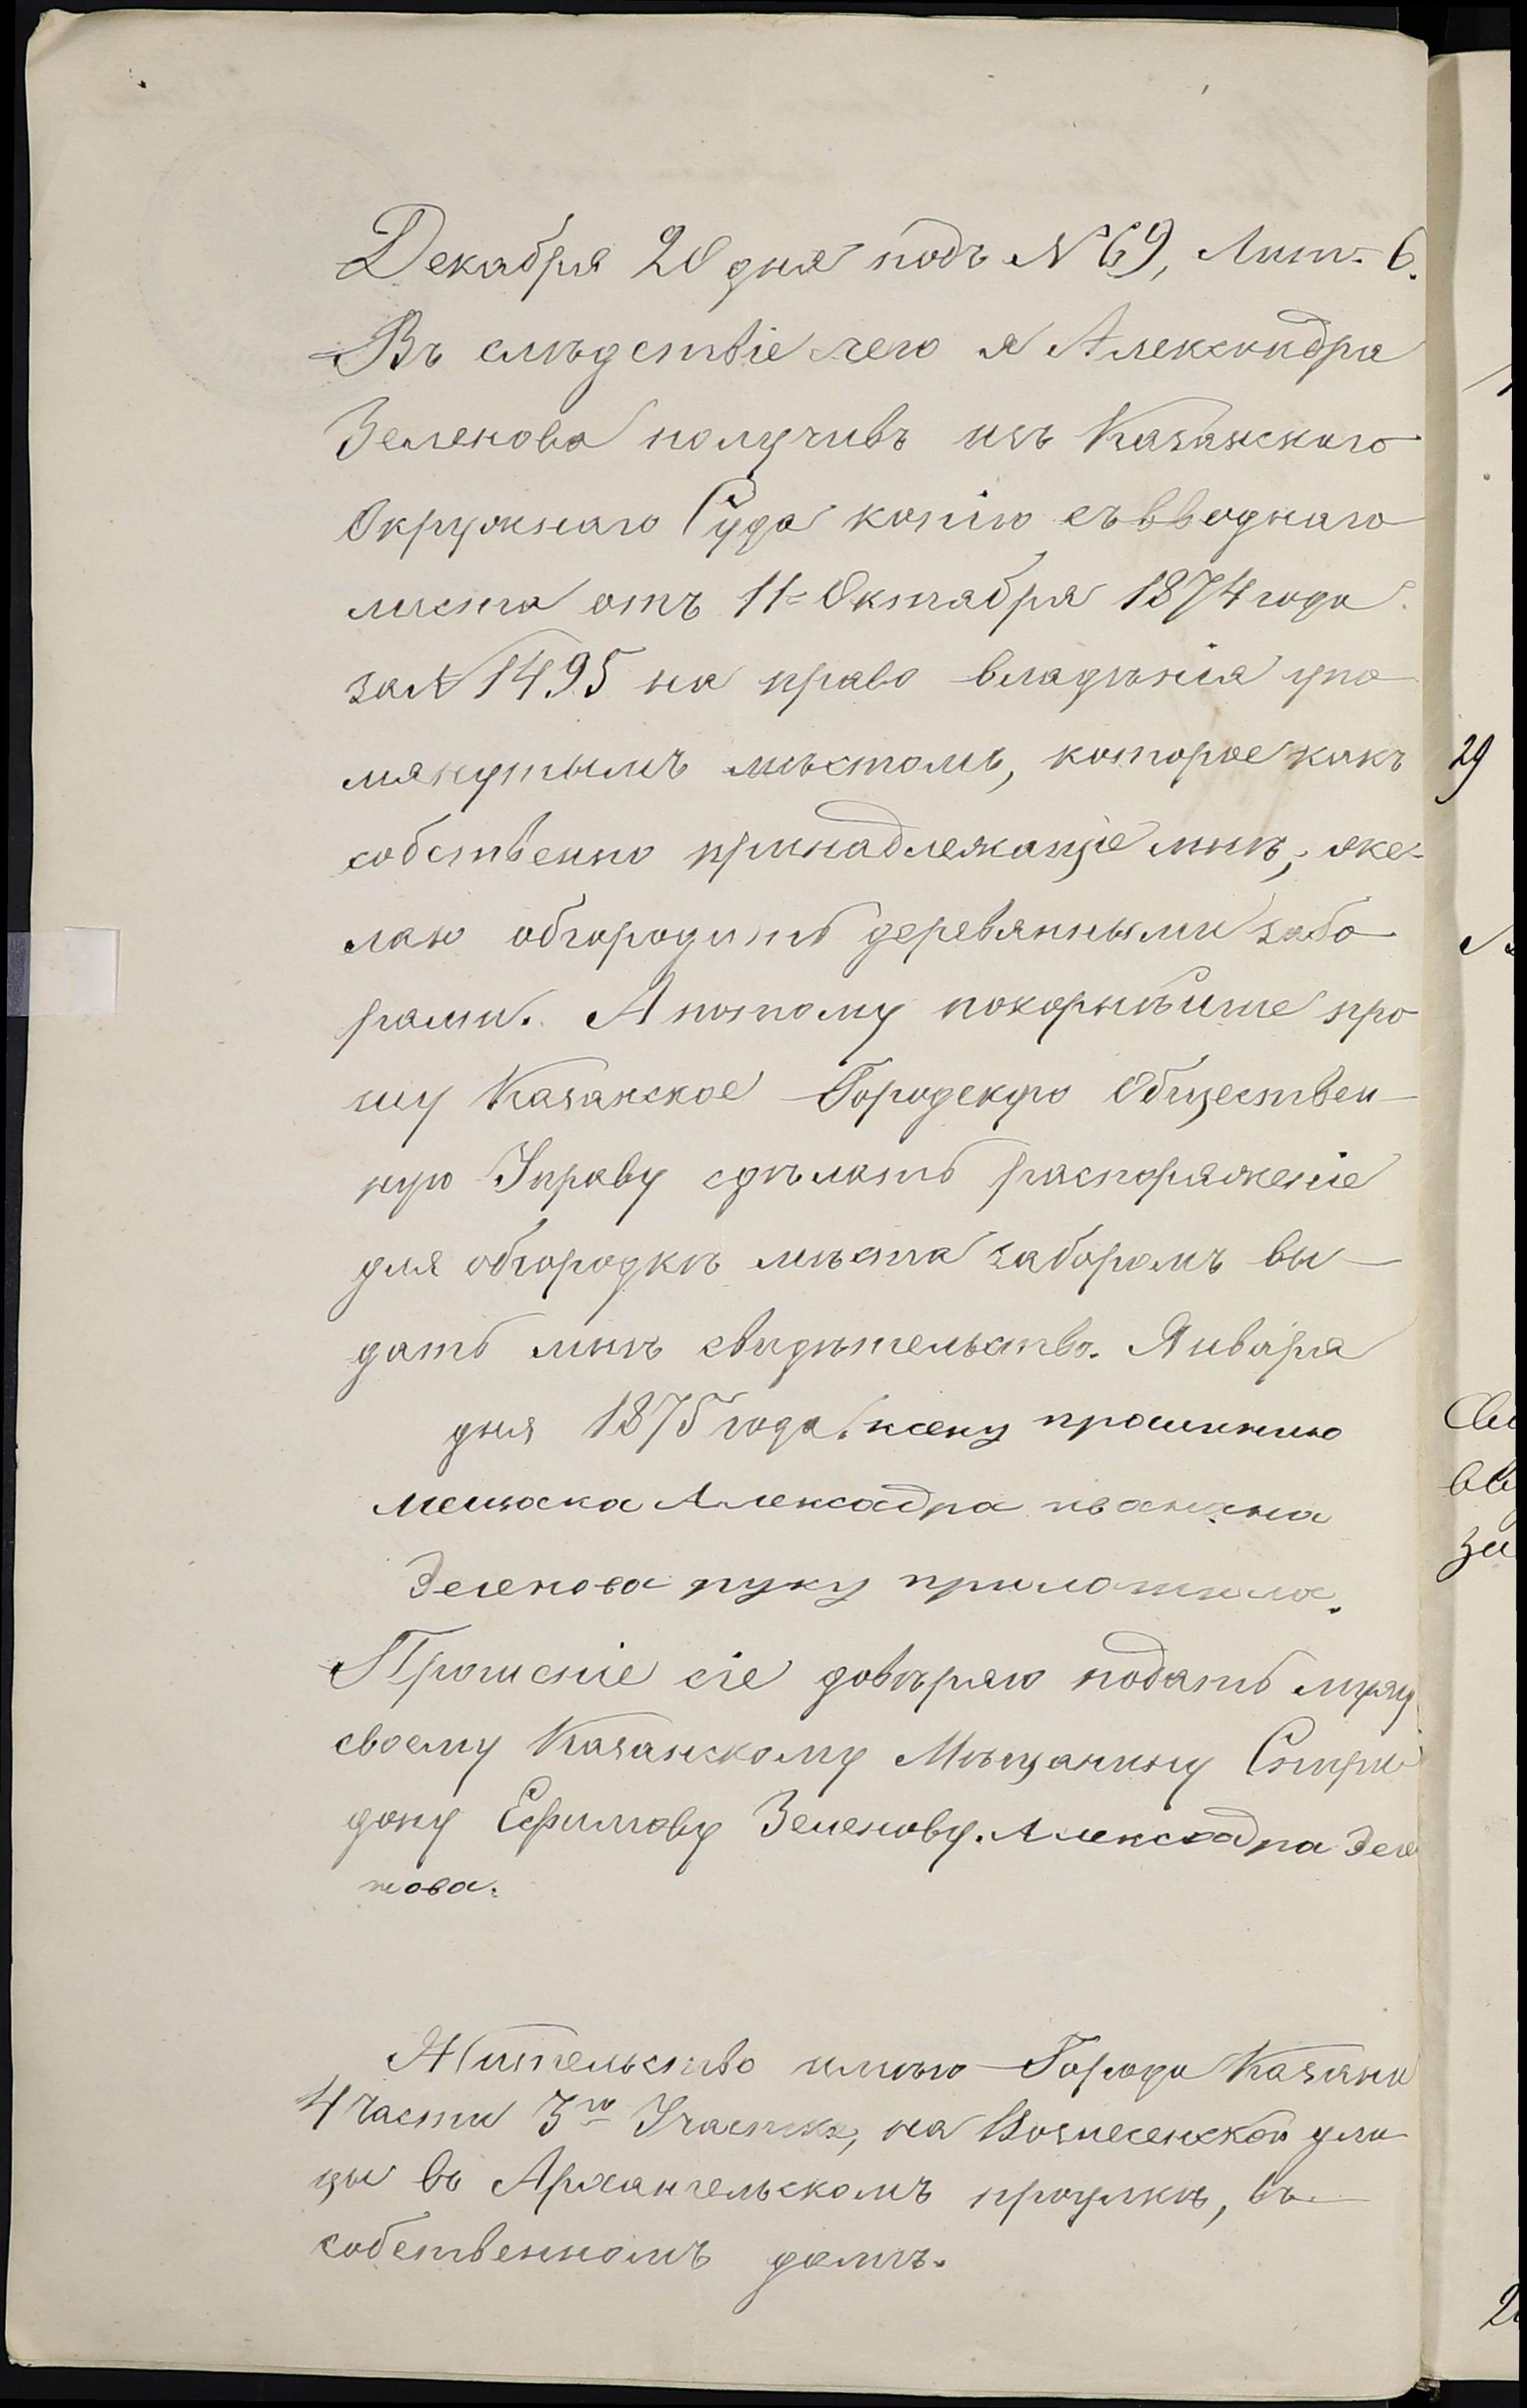 Декабря 20 дня подъ № 69, Лит. б.
Въ слѣдствіе чего я Александра
Зеленова получивъ изъ Казанскаго
Окружнаго Суда копію съ вводнаго
листа отъ 11 Октабря 1874 года
за № 1495 на право владѣнія упо
мянутымъ мѣстомъ, которое какъ
собственно принадлежащіе мнѣ, же-
лаю обгородить деревянными забо
рами. А потому покорнѣише про
шу Казанское Городскую Обществен
ную Управу сдѣлать распоряженіе
для обгородкѣ мѣста заборомъ вы
дать мнѣ свидѣтельство. Января
дня 1875 года. ксему прошинию
мещаска Алексадра ивановна
Зеленова руку приложила.
Прошеніе сіе довѣряю подать мужу
своему Казанскому Мѣщанину Спири
дону Ефимову Зеленову. Алексадра Зеле
нова.
Жительство имѣю Города Казани
4 Части 3го Участка, на Вознесенской ули
цы въ Архангельскомъ проулкѣ, въ
собственномъ домѣ.
29